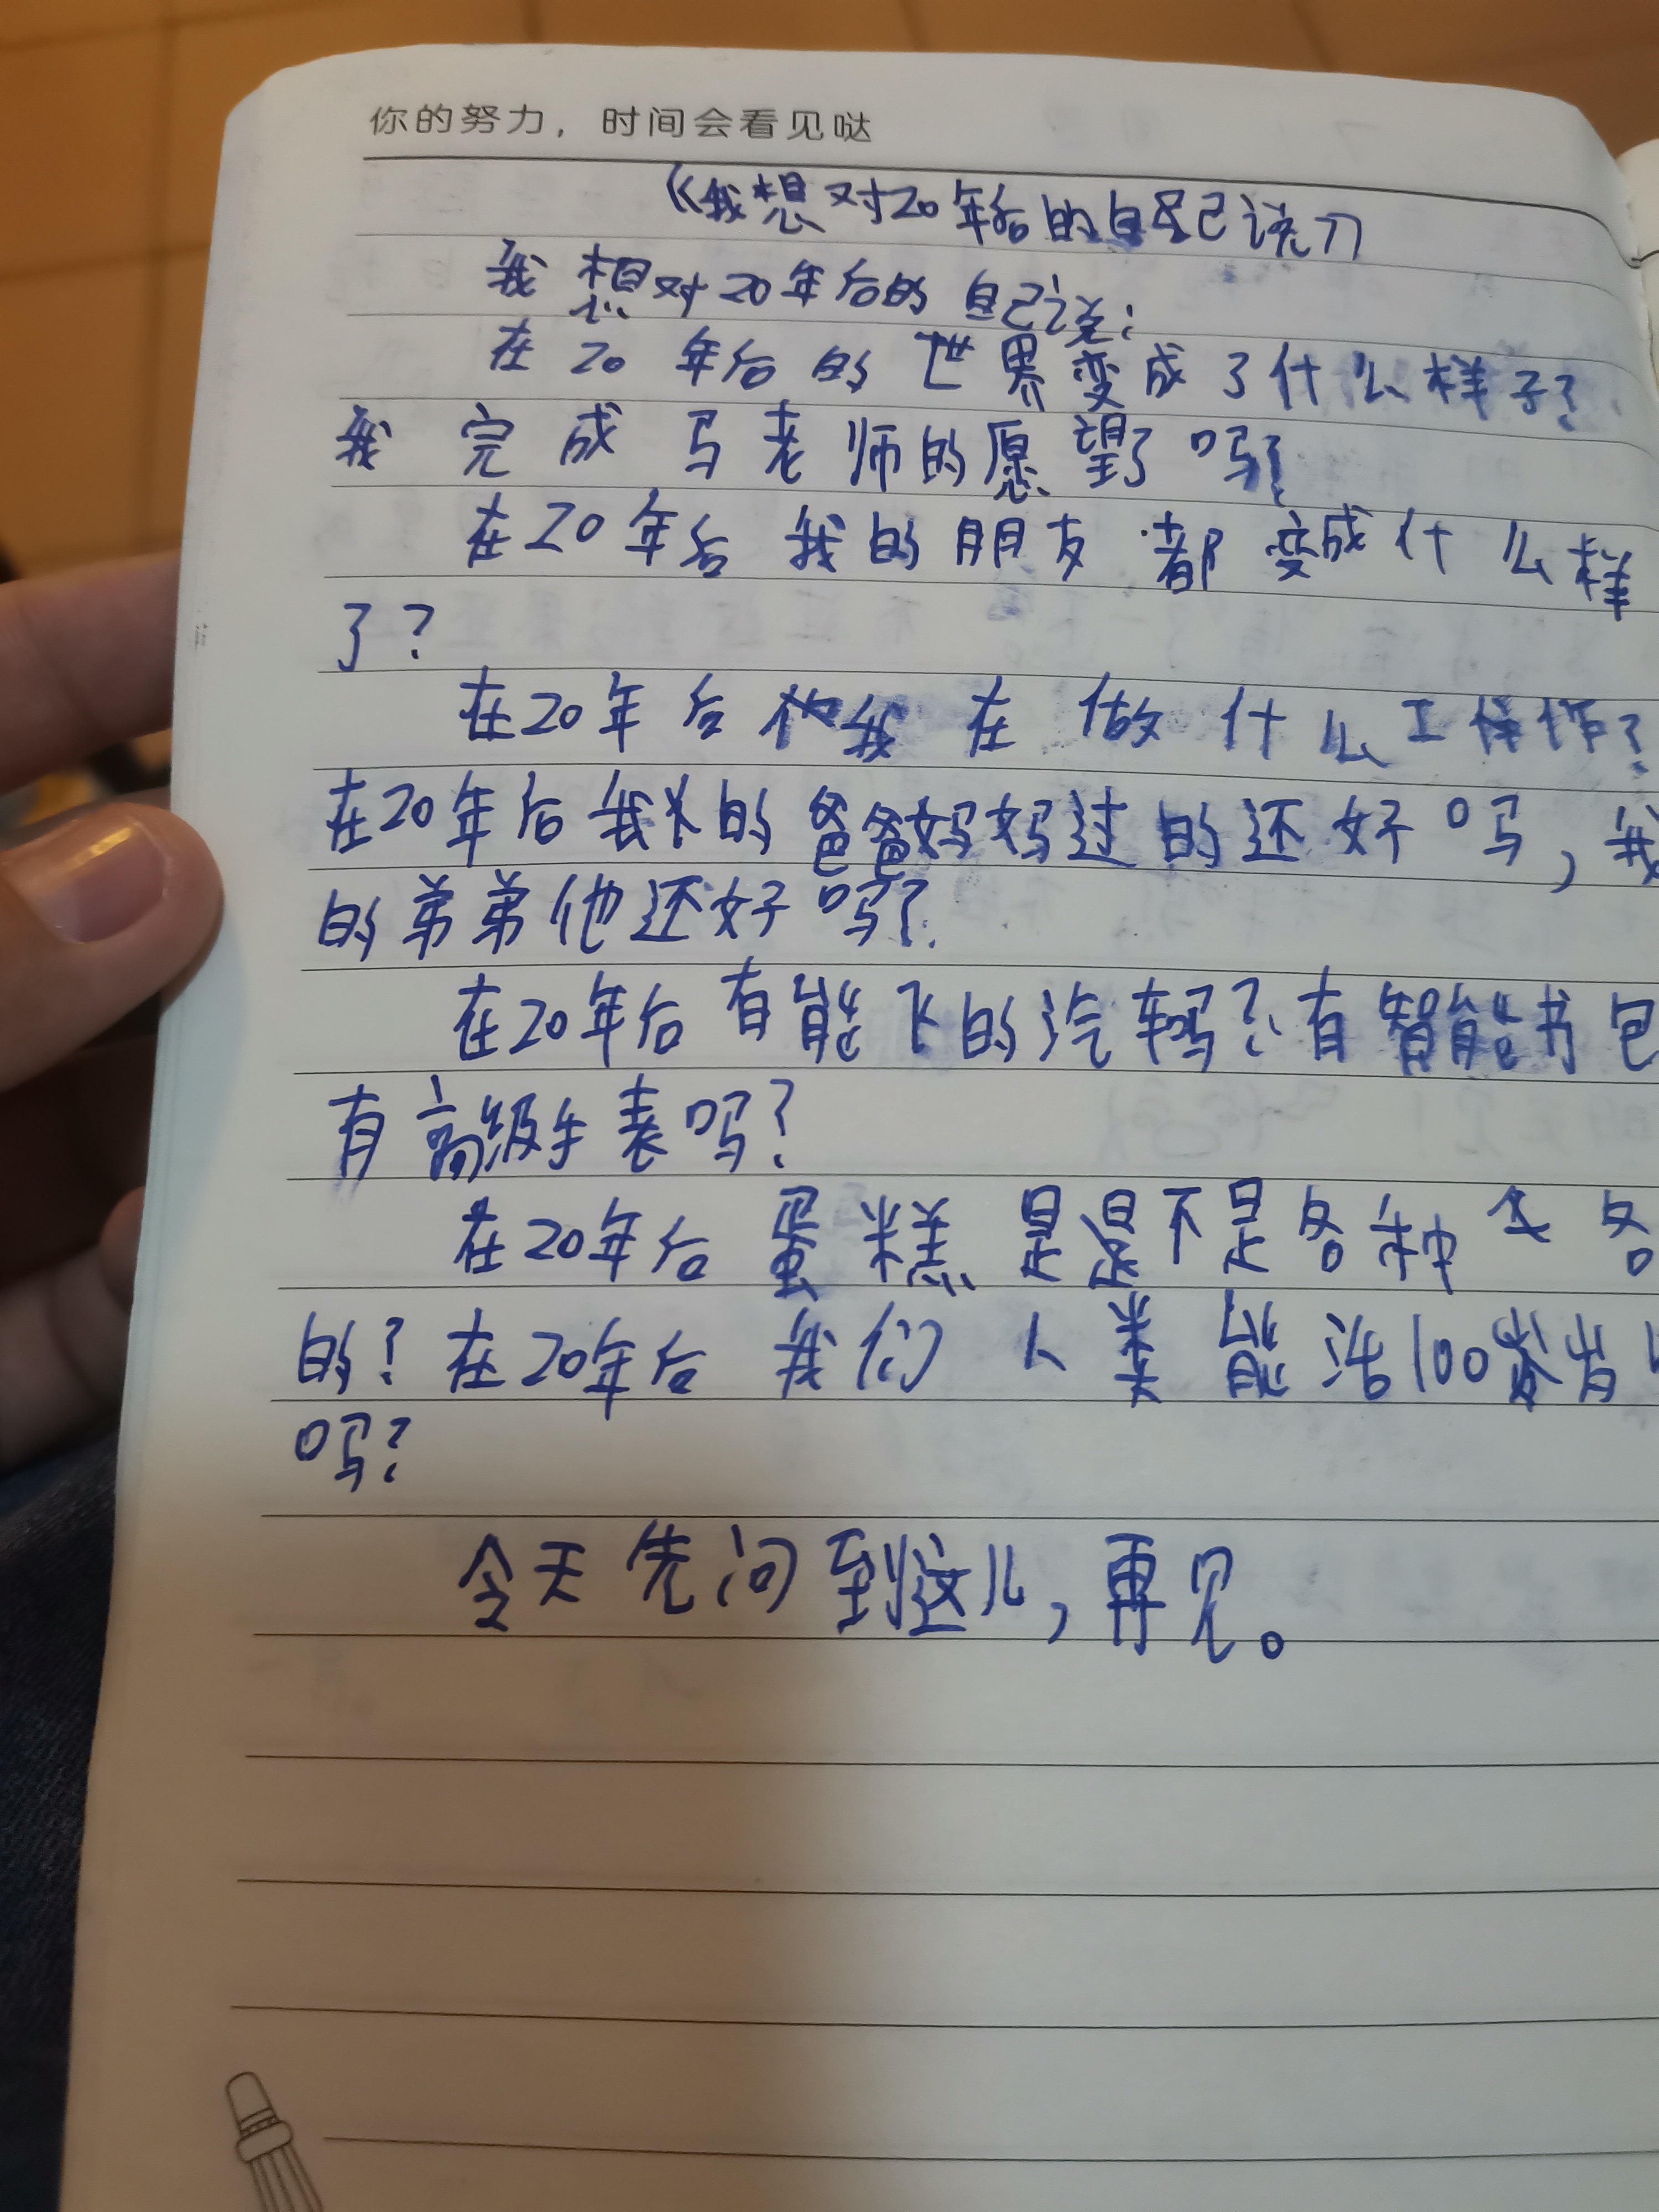 你的努力，时间会看见哒
《我想对20年后的自己说》
我想对20年后的自己说：
在20年后的世界变成了什么样子？
我完成马老师的愿望了吗？
在20年后我的朋友都变成什么样
了？
在20年后我在做什么工作？
在20年后我的爸爸妈妈过的还好吗，我
的弟弟他还好吗？
在20年后有能飞的汽车吗？有智能书包
有高级手表吗？
在20年后蛋糕是不是各种各
的？在20年后我们人类能活100岁
吗？
今天先问到这儿，再见。